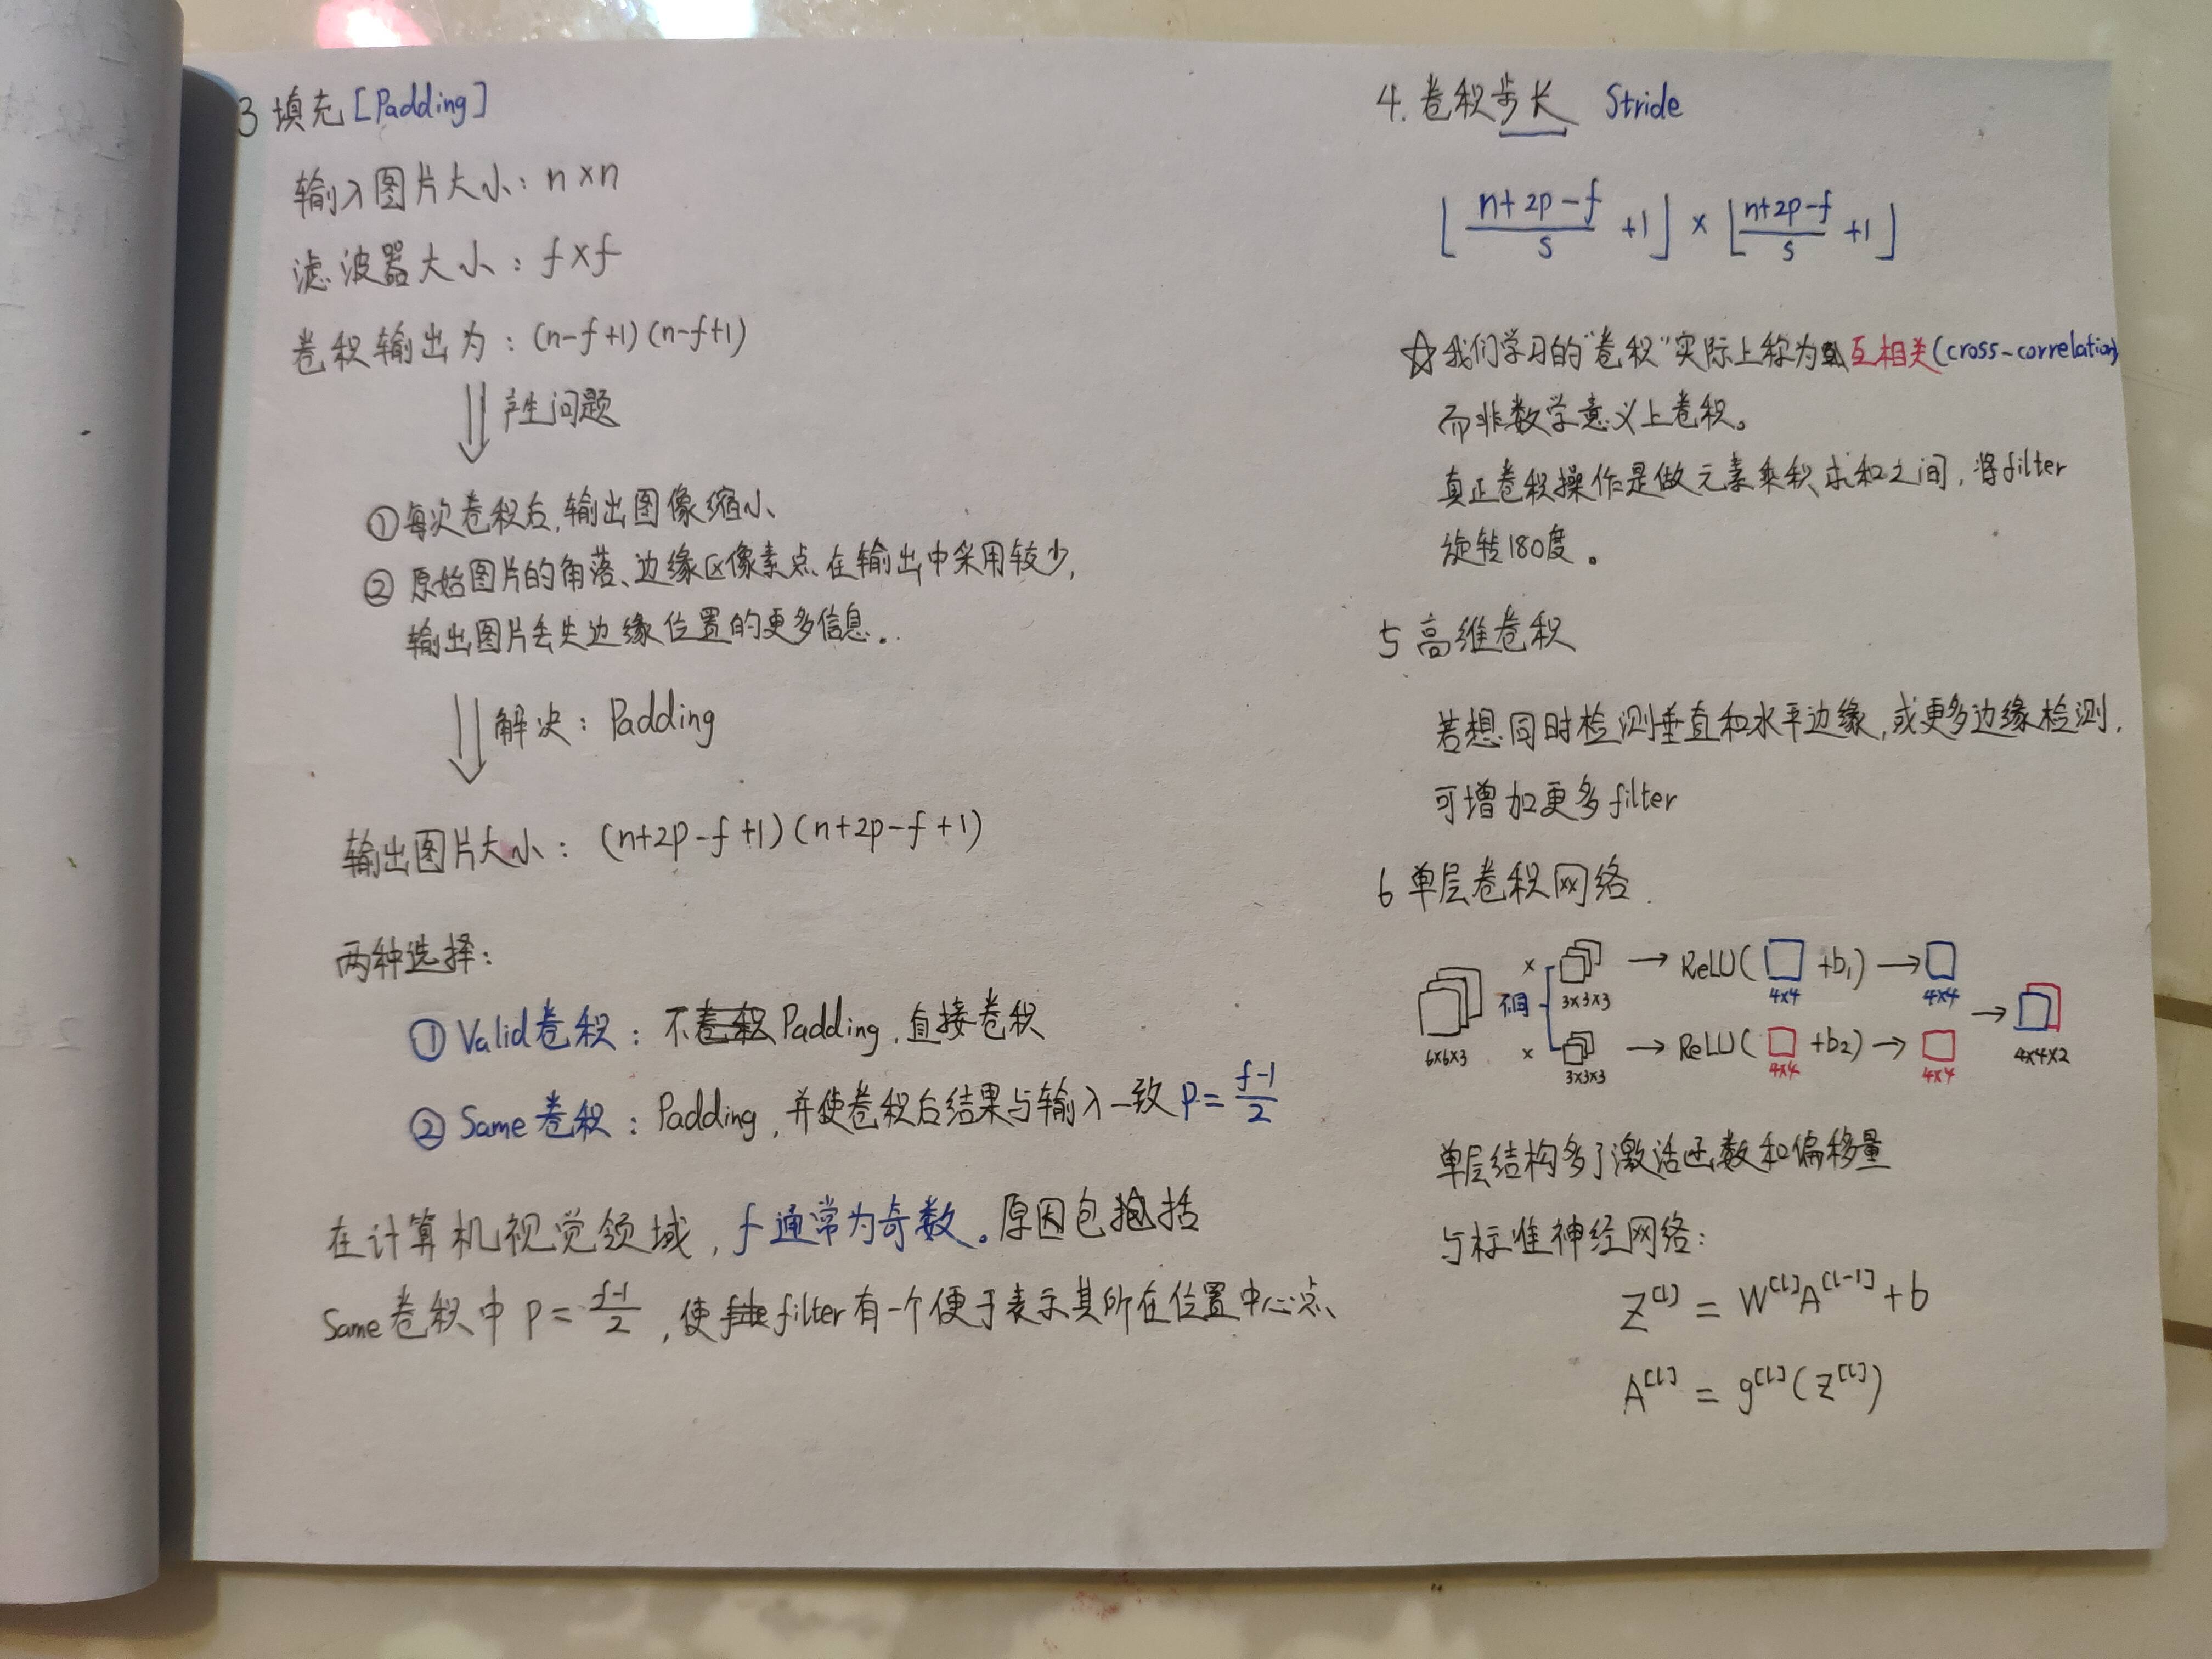 3 填充 [Padding]
输入图片大小：n×n
滤波器大小：f×f
卷积输出为：(n-f+1)(n-f+1)
产生问题
①每次卷积后,输出图像缩小、
② 原始图片的角落、边缘区像素点在输出中采用较少,
输出图片丢失边缘位置的更多信息。
解决：Padding
输出图片大小：(n+2p-f+1)(n+2p-f+1)
两种选择：
① Valid卷积：不Padding,直接卷积
② Same卷积：Padding,并使卷积后结果与输入一致 P=\frac{f-1}{2}
在计算机视觉领域,f通常为奇数。原因包括
Same卷积中 P=\frac{f-1}{2},使filter有一个便于表示其所在位置中心点、
4.卷积步长 Stride
⌊\frac{n+2p-f}{s}+1⌋×⌊\frac{n+2p-f}{s}+1⌋
☆我们学习的"卷积"实际上称为互相关(cross-correlation)
而非数学意义上卷积。
真正卷积操作是做元素乘积求和之间,将filter
旋转180度。
5 高维卷积
若想同时检测垂直和水平边缘,或更多边缘检测.
可增加更多filter
6 单层卷积网络.
× → ReLU( +b₁) →
3×3×3 4×4 4×4
6×6×3 → 4×4×2
× → ReLU( +b₂) →
3×3×3 4×4 4×4
单层结构多了激活函数和偏移量
与标准神经网络：
Z^{[l]} = W^{[l]}A^{[l-1]}+b
A^{[l]} = g^{[l]}(Z^{[l]})